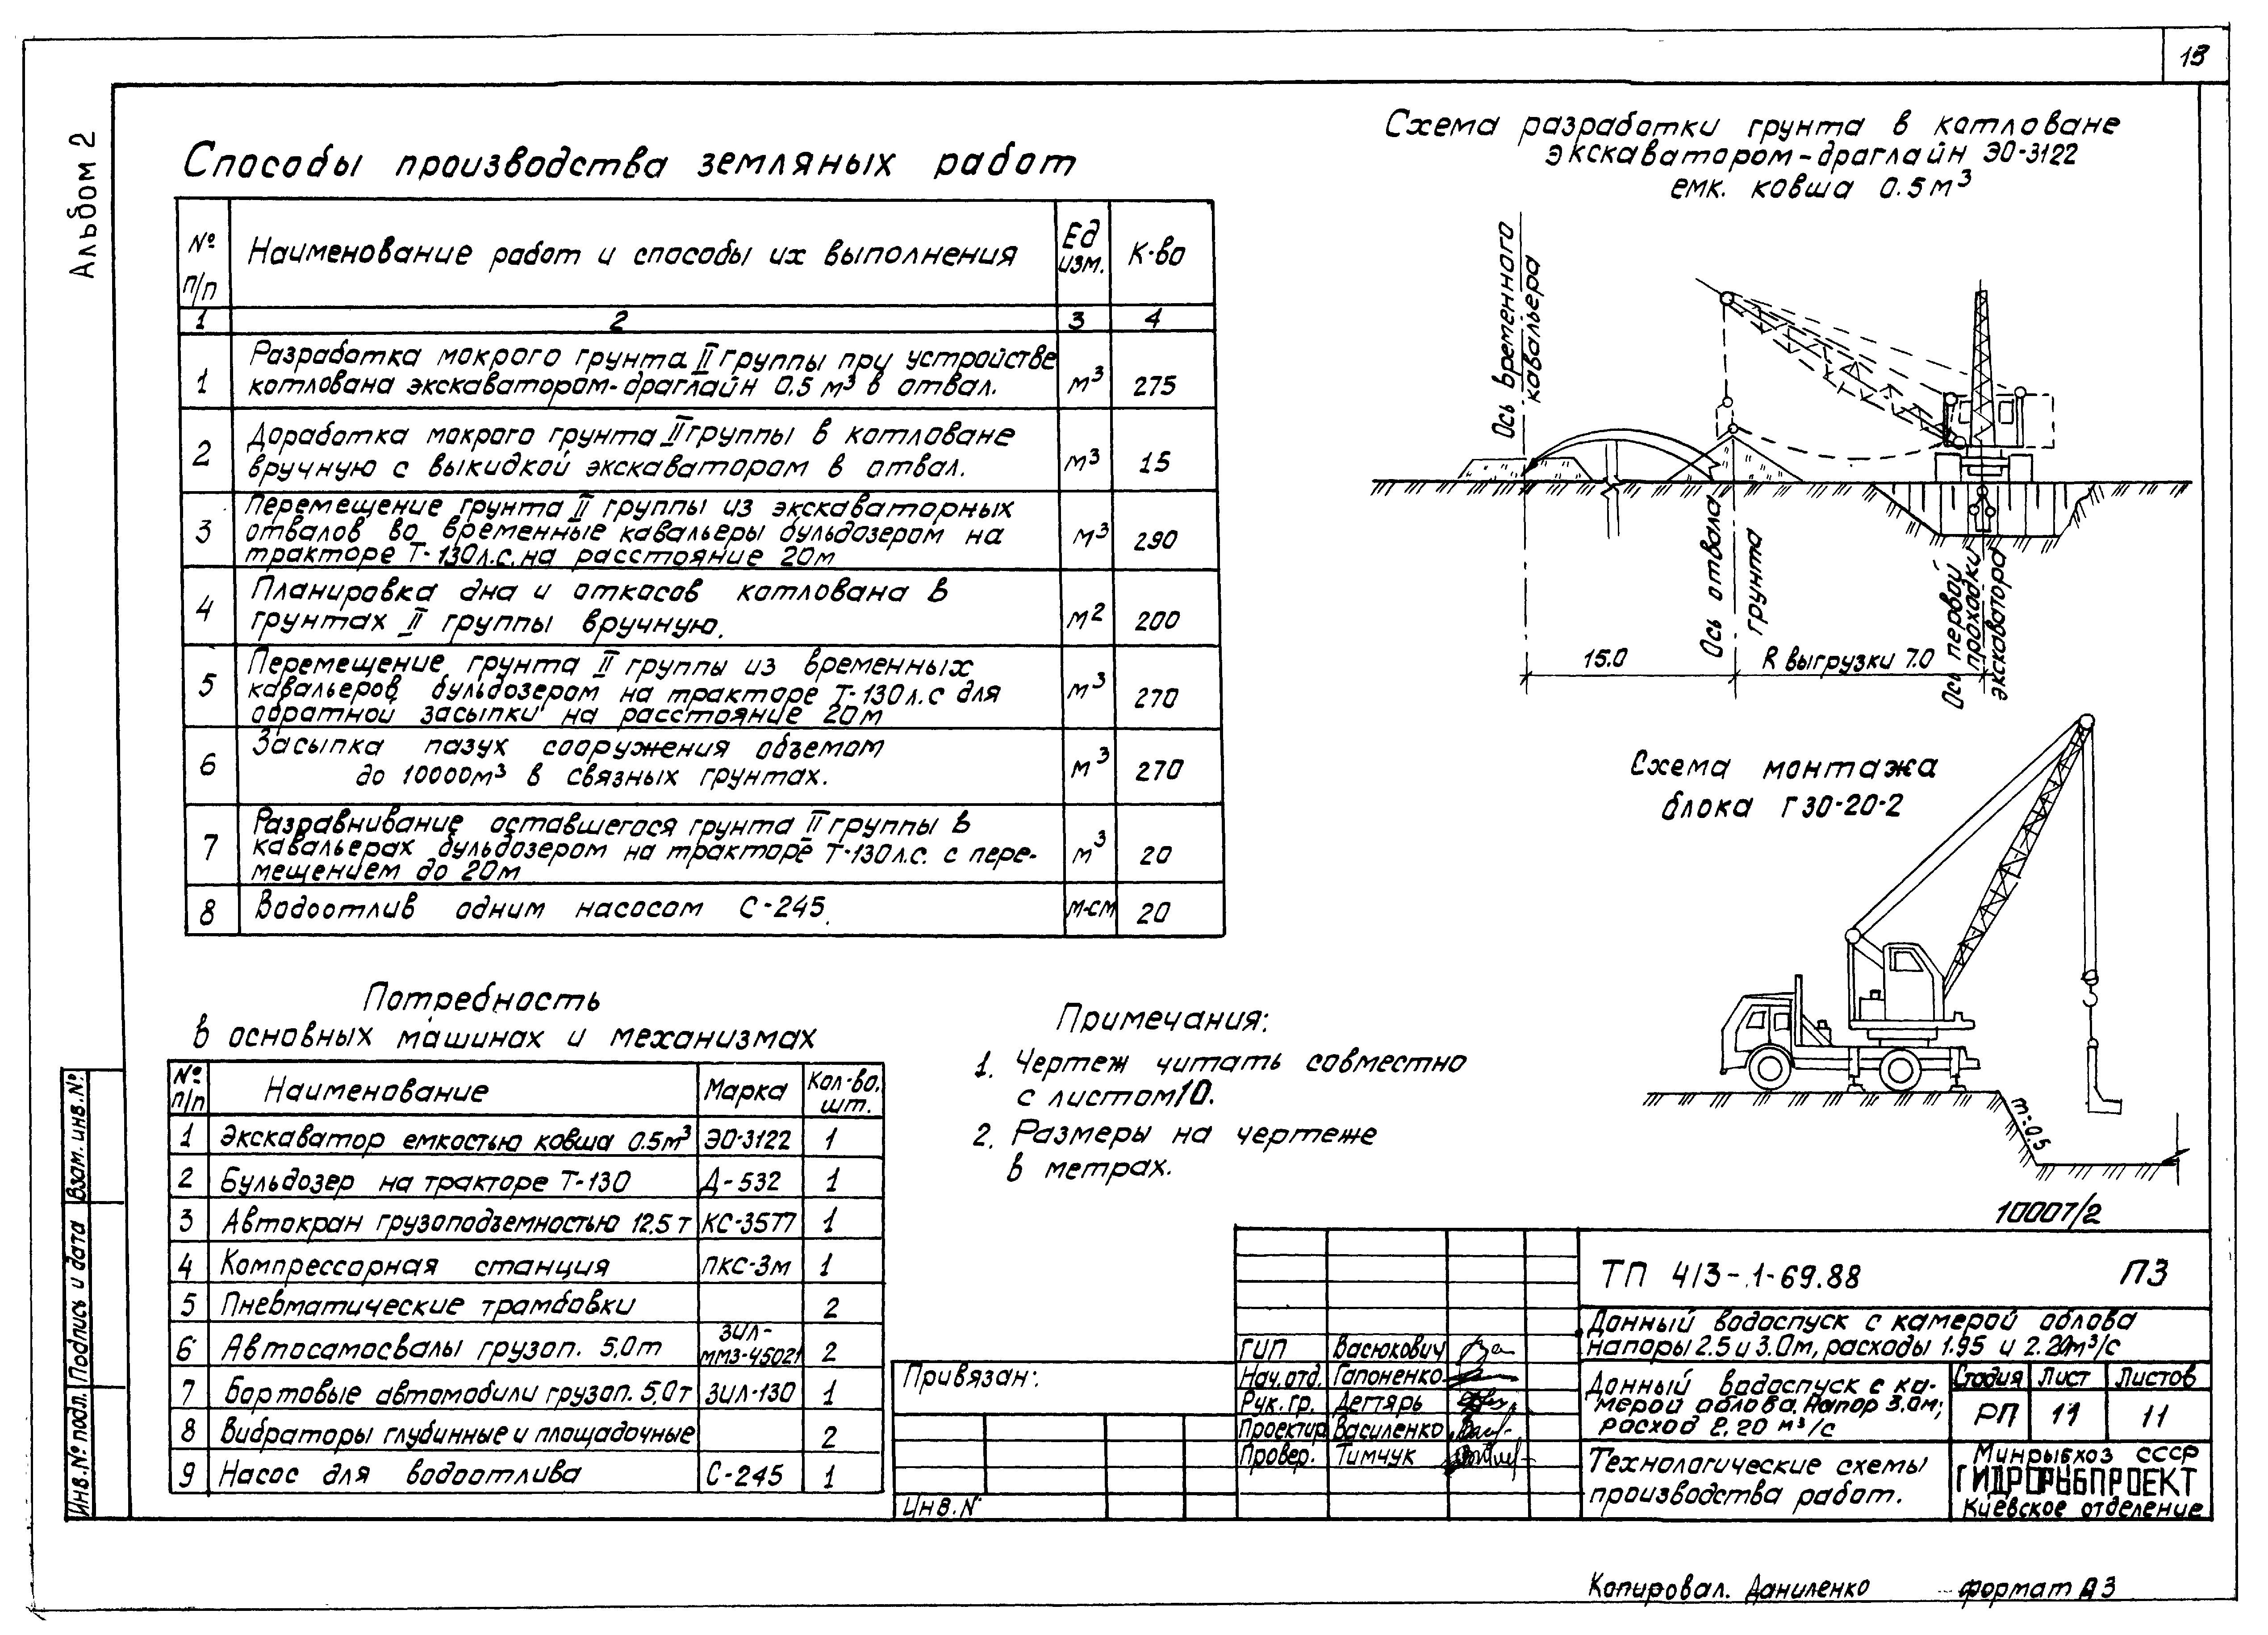 13
Альбом 2
Способы производства земляных работ
№ п/п
Наименование работ и способы их выполнения
Ед изм.
К-во
1 2 3 4
1 Разработка мокрого грунта II группы при устройстве
котлована экскаватором-драглайн 0.5 м³ в отвал. м³ 275
2 Доработка мокрого грунта II группы в котловане
вручную с выкидкой экскаватором в отвал. м³ 15
3 Перемещение грунта II группы из экскаваторных
отвалов во временные кавальеры бульдозером на
тракторе Т-130л.с. на расстояние 20м м³ 290
4 Планировка дна и откосов котлована в
грунтах II группы вручную. м2 200
5 Перемещение грунта II группы из временных
кавальеров бульдозером на тракторе Т-130л.с для
обратной засыпки на расстояние 20м м³ 270
6 Засыпка пазух сооружения объемом
до 10000м³ в связных грунтах. м³ 270
7 Разравнивание оставшегося грунта II группы в
кавальерах бульдозером на тракторе Т-130л.с. с пере-
мещением до 20м м³ 20
8 Водоотлив одним насосом С-245. м-см 20
Схема разработки грунта в котловане
экскаватором-драглайн ЭО-3122
емк. ковша 0.5м³
Ось временного
кавальера
Ось отвала
грунта
Ось первой
проходки
экскаватора
15.0
R выгрузки 7.0
Схема монтажа
блока Г30-20-2
m=0.5
Потребность
в основных машинах и механизмах
№ п/п
Наименование
Марка
Кол-во, шт.
1 Экскаватор емкостью ковша 0.5м³ ЭО-3122 1
2 Бульдозер на тракторе Т-130 Д-532 1
3 Автокран грузоподъемностью 12.5т КС-3577 1
4 Компрессорная станция ПКС-3м 1
5 Пневматические трамбовки 2
6 Автосамосвалы грузоп. 5,0т ЗИЛ-
ММЗ-45021 2
7 Бортовые автомобили грузоп. 5,0т ЗИЛ-130 1
8 Вибраторы глубинные и площадочные 2
9 Насос для водоотлива С-245 1
Примечания:
1. Чертеж читать совместно
с листом 10.
2. Размеры на чертеже
в метрах.
10007/2
Взам. инв.№
Подпись и дата
Инв.№ подл.
Привязан:
Инв.№
ГИП Васюкович
Нач.отд. Гапоненко
Рук.гр. Дегтярь
Проектир Василенко
Провер. Тимчук
ТП 413-.1-69.88 ПЗ
Донный водоспуск с камерой облова
напоры 2.5 и 3.0м, расходы 1.95 и 2.20м³/с
Донный водоспуск с ка-
мерой облова. Напор 3,0м;
расход 2,20 м³/с
Стадия Лист Листов
РП 11 11
Технологические схемы
производства работ.
Минрыбхоз СССР
ГИДРОРЫБПРОЕКТ
Киевское отделение
Копировал. Даниленко формат А3